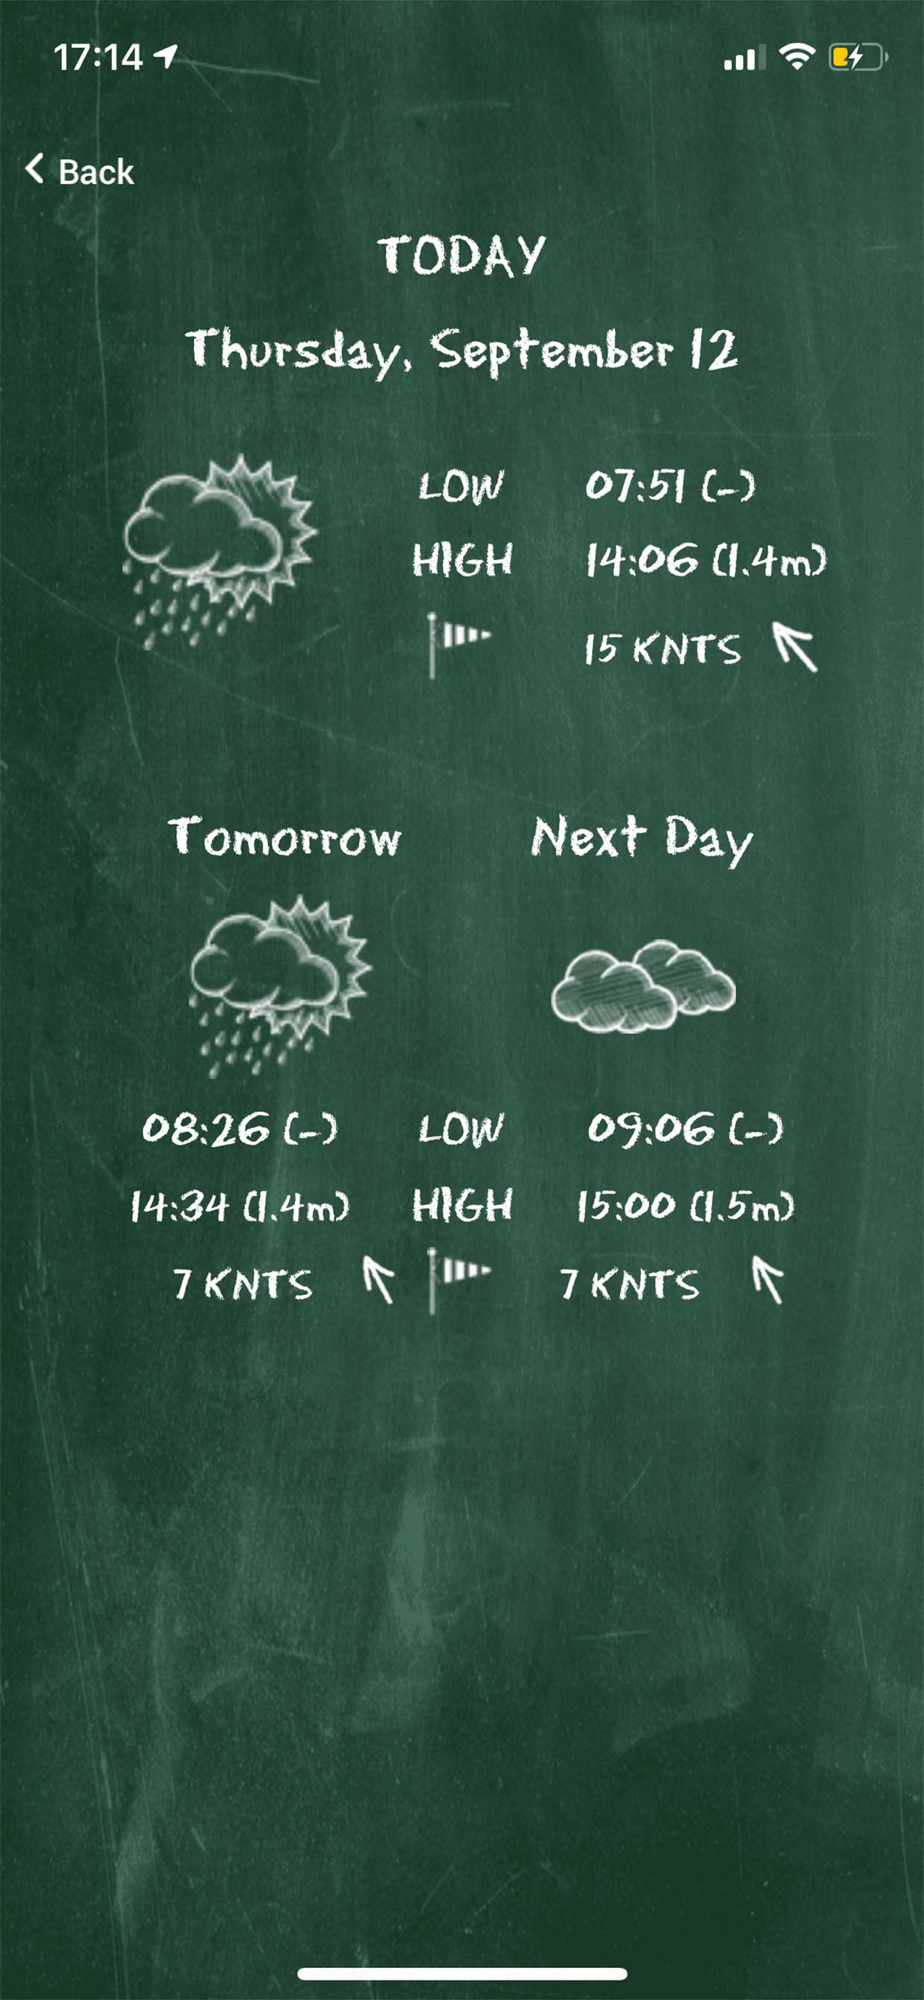 17:14
Back
TODAY
Thursday, September 12
LOW 07:51 (-)
HIGH 14:06 (1.4m)
15 KNTS
Tomorrow Next Day
08:26 (-) LOW 09:06 (-)
14:34 (1.4m) HIGH 15:00 (1.5m)
7 KNTS 7 KNTS